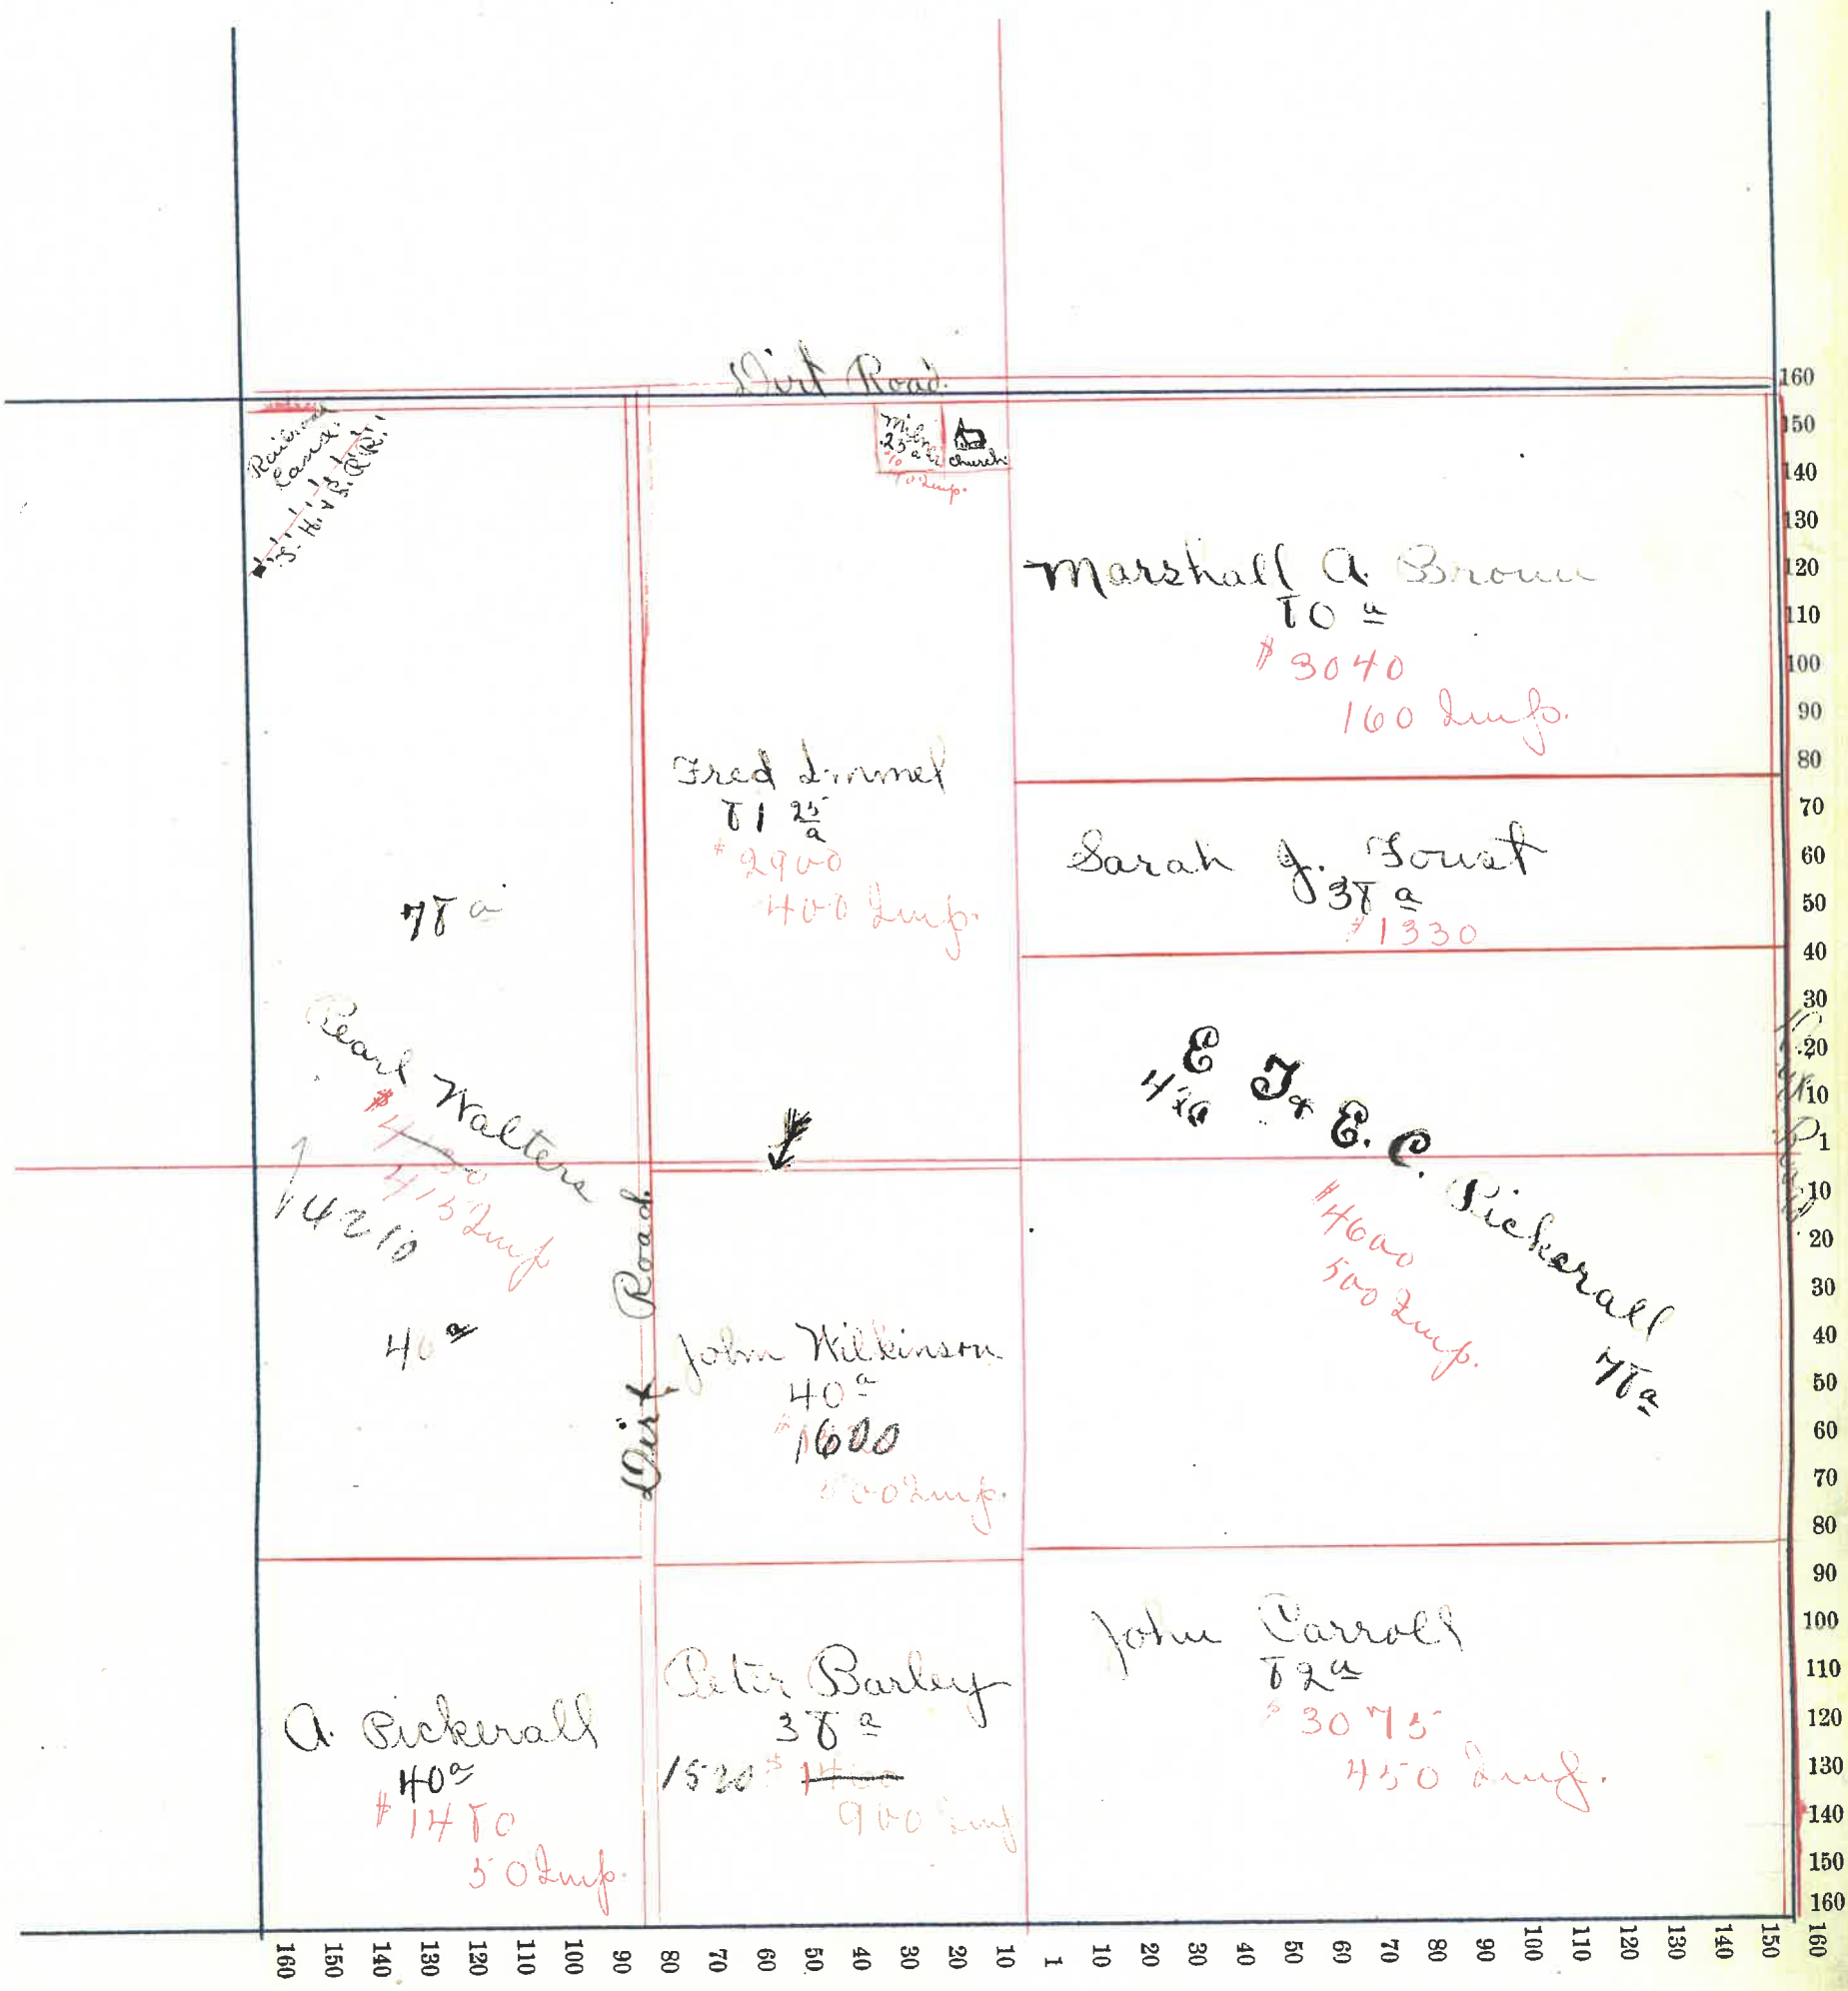 Dirt Road.
Railroad
Land
S. H. & E. R.R.
church
10 Imp.
Marshall A. Brown
80 a
$3040
160 Imp.
Fred Immel
81 25 a
$2900
400 Imp.
Sarah J. Foust
38 a
$1330
78 a
Pearl Walters
415 Imp
4210
40 a
E F & E. C. Pickerall
$4600
500 Imp.
78 a
Dirt Road.
John Wilkinson
40 a
1600
500 Imp.
A. Pickerall
40 a
$1480
50 Imp.
Peter Barley
38 a
1520
900 Imp
John Carroll
82 a
$3075
450 Imp.
160
150
140
130
120
110
100
90
80
70
60
50
40
30
20
10
1
10
20
30
40
50
60
70
80
90
100
110
120
130
140
150
160
160 150 140 130 120 110 100 90 80 70 60 50 40 30 20 10 1 10 20 30 40 50 60 70 80 90 100 110 120 130 140 150 160